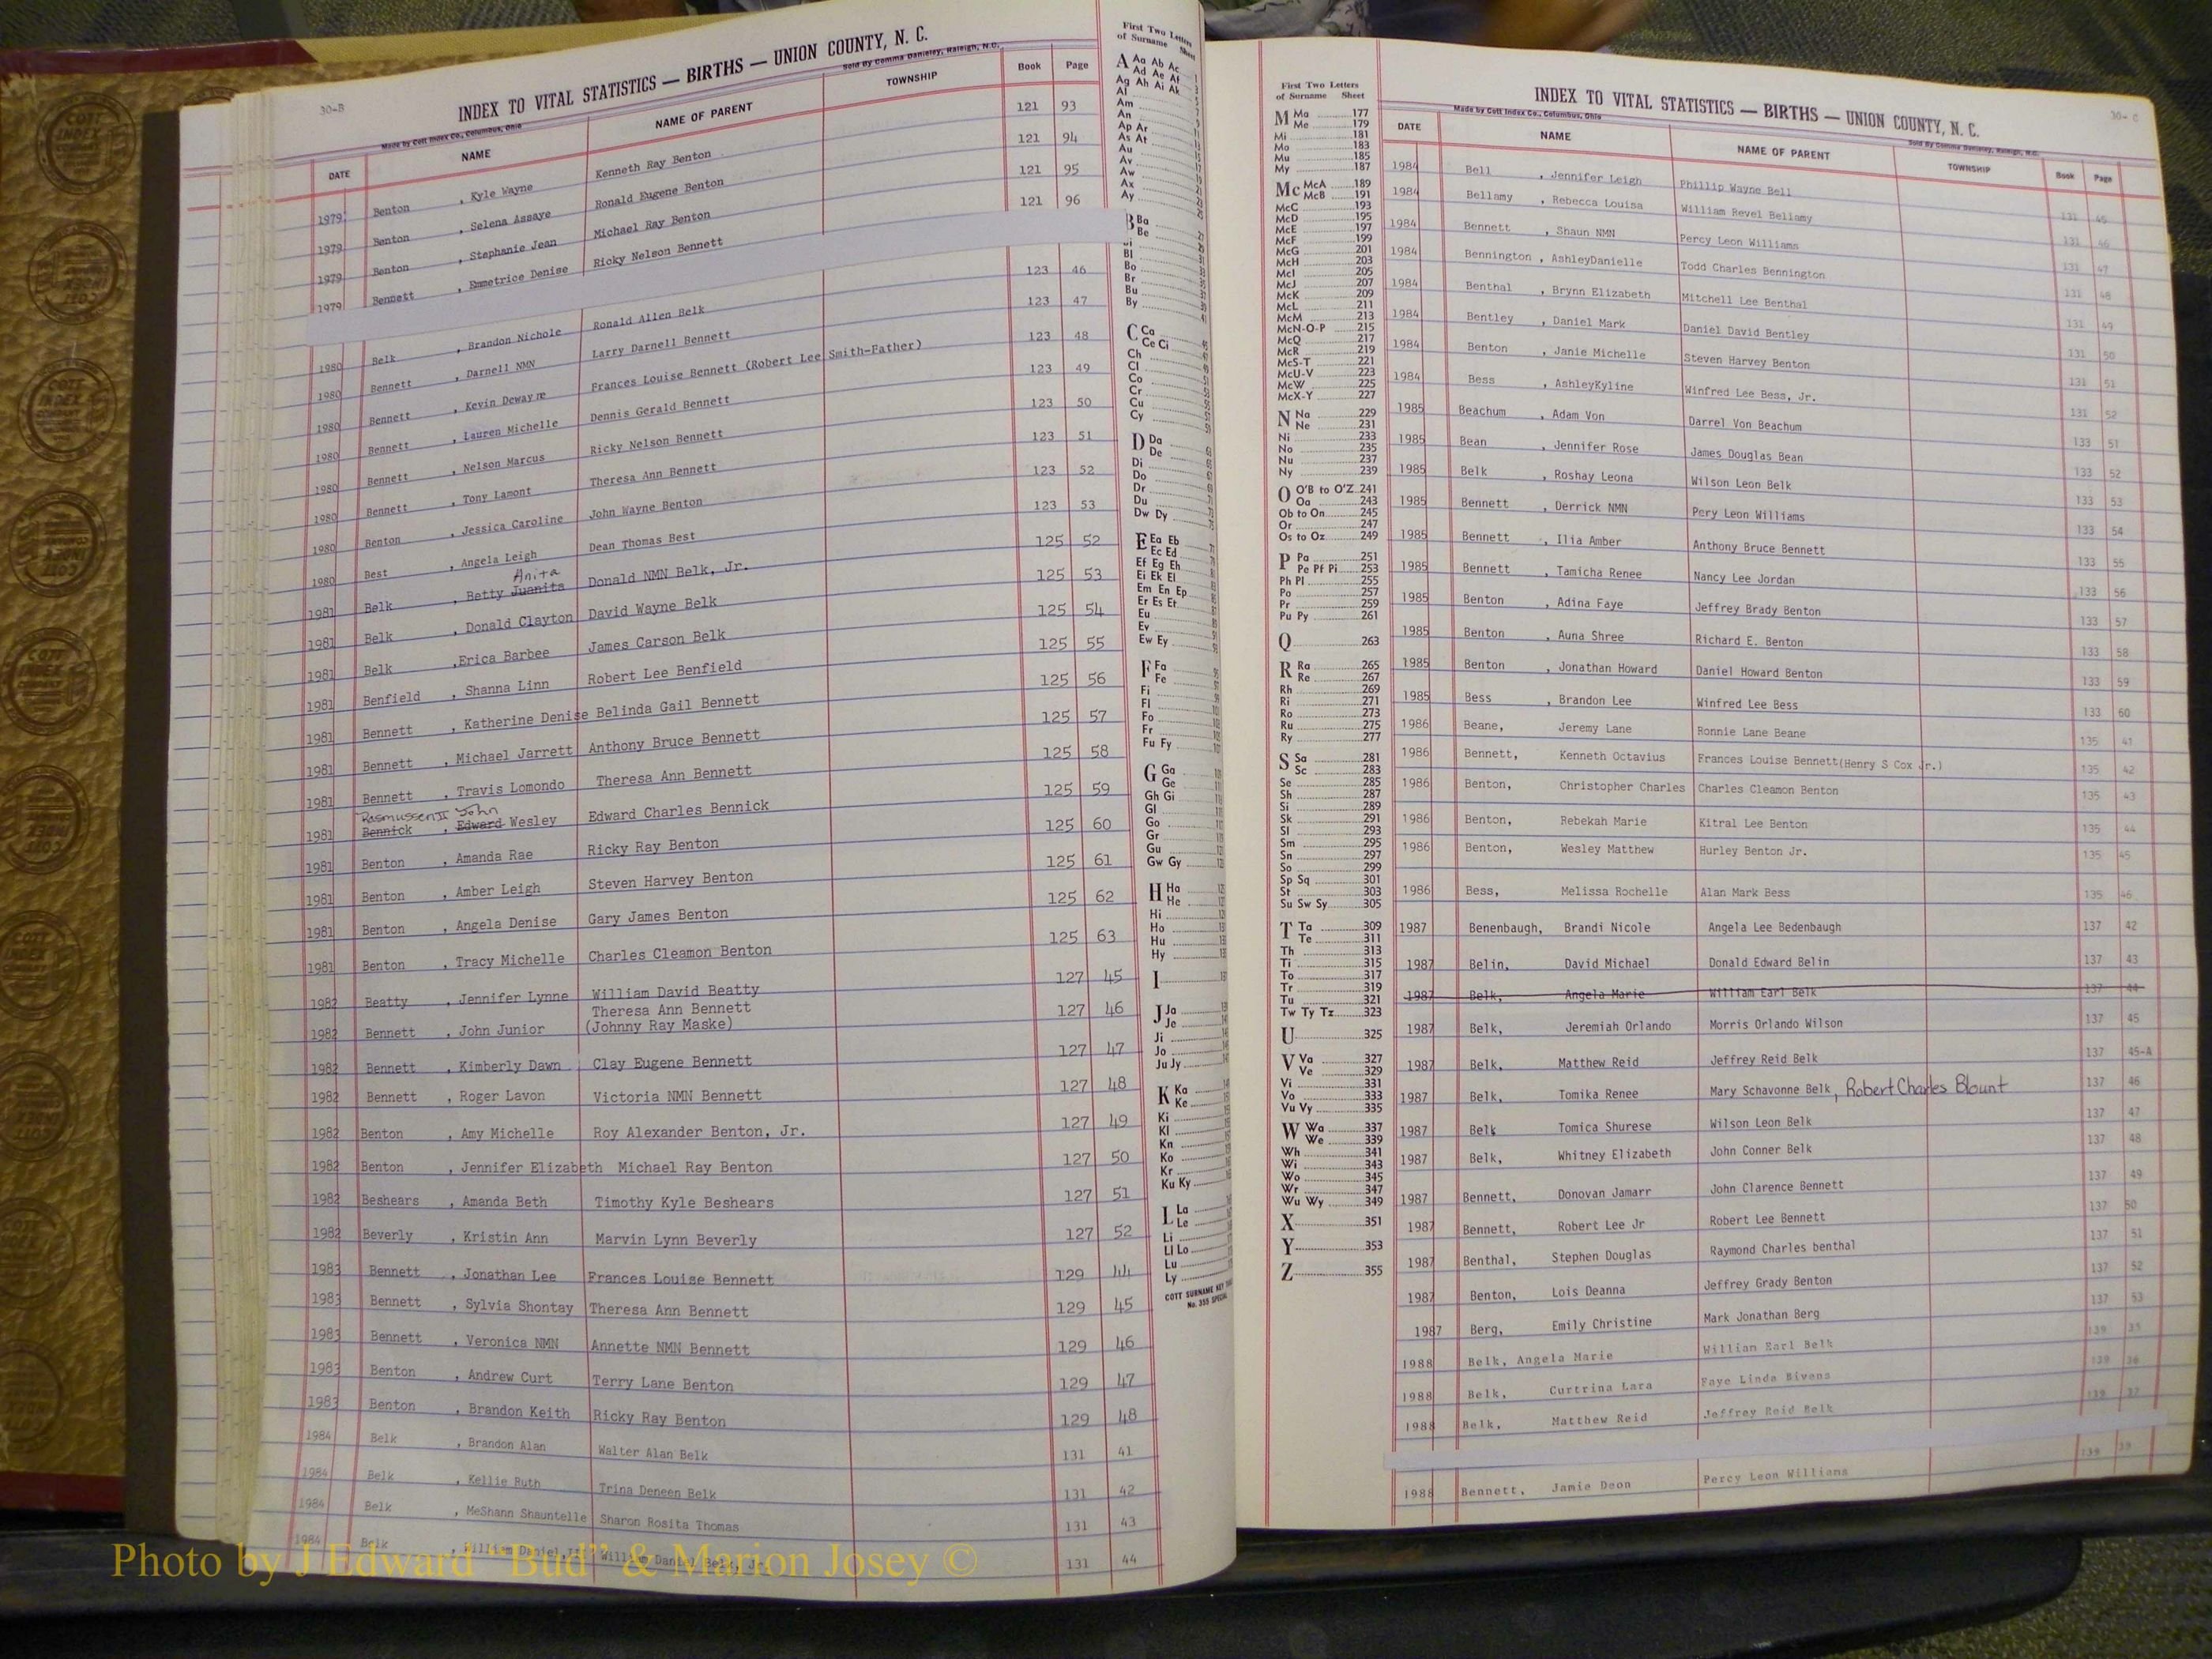 30-B
INDEX TO VITAL STATISTICS — BIRTHS — UNION COUNTY, N. C.
Made by Cott Index Co., Columbus, Ohio
Sold By Comma Danieley, Raleigh, N.C.
DATE NAME NAME OF PARENT TOWNSHIP Book Page
1979 Benton , Kyle Wayne Kenneth Ray Benton 121 93
1979 Benton , Selena Assaye Ronald Eugene Benton 121 94
1979 Benton , Stephanie Jean Michael Ray Benton 121 95
1979 Bennett , Emmetrice Denise Ricky Nelson Bennett 121 96
1980 Belk , Brandon Nichole Ronald Allen Belk 123 46
1980 Bennett , Darnell NMN Larry Darnell Bennett 123 47
1980 Bennett , Kevin Dewayne Frances Louise Bennett (Robert Lee Smith-Father) 123 48
1980 Bennett , Lauren Michelle Dennis Gerald Bennett 123 49
1980 Bennett , Nelson Marcus Ricky Nelson Bennett 123 50
1980 Bennett , Tony Lamont Theresa Ann Bennett 123 51
1980 Benton , Jessica Caroline John Wayne Benton 123 52
1980 Best , Angela Leigh Dean Thomas Best 123 53
Anita
1981 Belk , Betty Juanita Donald NMN Belk, Jr. 125 52
1981 Belk , Donald Clayton David Wayne Belk 125 53
1981 Belk ,Erica Barbee James Carson Belk 125 54
1981 Benfield , Shanna Linn Robert Lee Benfield 125 55
1981 Bennett , Katherine Denise Belinda Gail Bennett 125 56
1981 Bennett , Michael Jarrett Anthony Bruce Bennett 125 57
1981 Bennett , Travis Lomondo Theresa Ann Bennett 125 58
Rasmussen II John
1981 Bennick , Edward Wesley Edward Charles Bennick 125 59
1981 Benton , Amanda Rae Ricky Ray Benton 125 60
1981 Benton , Amber Leigh Steven Harvey Benton 125 61
1981 Benton , Angela Denise Gary James Benton 125 62
1981 Benton , Tracy Michelle Charles Cleamon Benton 125 63
1982 Beatty , Jennifer Lynne William David Beatty 127 45
Theresa Ann Bennett
1982 Bennett , John Junior (Johnny Ray Maske) 127 46
1982 Bennett , Kimberly Dawn Clay Eugene Bennett 127 47
1982 Bennett , Roger Lavon Victoria NMN Bennett 127 48
1982 Benton , Amy Michelle Roy Alexander Benton, Jr. 127 49
1982 Benton , Jennifer Elizabeth Michael Ray Benton 127 50
1982 Beshears , Amanda Beth Timothy Kyle Beshears 127 51
1982 Beverly , Kristin Ann Marvin Lynn Beverly 127 52
1983 Bennett , Jonathan Lee Frances Louise Bennett 129 44
1983 Bennett , Sylvia Shontay Theresa Ann Bennett 129 45
1983 Bennett , Veronica NMN Annette NMN Bennett 129 46
1983 Benton , Andrew Curt Terry Lane Benton 129 47
1983 Benton , Brandon Keith Ricky Ray Benton 129 48
1984 Belk , Brandon Alan Walter Alan Belk 131 41
1984 Belk , Kellie Ruth Trina Deneen Belk 131 42
1984 Belk , MeShann Shauntelle Sharon Rosita Thomas 131 43
1984 Belk , William Daniel, II William Daniel Belk, Jr. 131 44
First Two Letters
of Surname Sheet
A Aa Ab Ac
Ad Ae Af
Ag Ah Ai Ak
Al
Am
An
Ap Ar
As At
Au
Av
Aw
Ax
Ay
B Ba
Be
Bl
Bo
Br
Bu
By
C Ca
Ce Ci
Ch
Cl
Co
Cr
Cu
Cy
D Da
De
Di
Do
Dr
Du
Dw Dy
E Ea Eb
Ec Ed
Ef Eg Eh
Ei Ek El
Em En Ep
Er Es Et
Eu
Ev
Ew Ey
F Fa
Fe
Fi
Fl
Fo
Fr
Fu Fy
G Ga
Ge
Gh Gi
Gl
Go
Gr
Gu
Gw Gy
H Ha
He
Hi
Ho
Hu
Hy
I
J Ja
Je
Ji
Jo
Ju Jy
K Ka
Ke
Ki
Kl
Kn
Ko
Kr
Ku Ky
L La
Le
Li
Ll Lo
Lu
Ly
COTT SURNAME KEY
No. 355 SPECIAL
First Two Letters
of Surname Sheet
M Ma 177
Me 179
Mi 181
Mo 183
Mu 185
My 187
Mc McA 189
McB 191
McC 193
McD 195
McE 197
McF 199
McG 201
McH 203
McI 205
McJ 207
McK 209
McL 211
McM 213
McN-O-P 215
McQ 217
McR 219
McS-T 221
McU-V 223
McW 225
McX-Y 227
N Na 229
Ne 231
Ni 233
No 235
Nu 237
Ny 239
O O'B to O'Z 241
Oa 243
Ob to On 245
Or 247
Os to Oz 249
P Pa 251
Pe Pf Pi 253
Ph Pl 255
Po 257
Pr 259
Pu Py 261
Q 263
R Ra 265
Re 267
Rh 269
Ri 271
Ro 273
Ru 275
Ry 277
S Sa 281
Sc 283
Se 285
Sh 287
Si 289
Sk 291
Sl 293
Sm 295
Sn 297
So 299
Sp Sq 301
St 303
Su Sw Sy 305
T Ta 309
Te 311
Th 313
Ti 315
To 317
Tr 319
Tu 321
Tw Ty Tz 323
U 325
V Va 327
Ve 329
Vi 331
Vo 333
Vu Vy 335
W Wa 337
We 339
Wh 341
Wi 343
Wo 345
Wr 347
Wu Wy 349
X 351
Y 353
Z 355
30- C
INDEX TO VITAL STATISTICS — BIRTHS — UNION COUNTY, N. C.
Made by Cott Index Co., Columbus, Ohio
Sold By Comma Danieley, Raleigh, N.C.
DATE NAME NAME OF PARENT TOWNSHIP Book Page
1984 Bell , Jennifer Leigh Phillip Wayne Bell 131 45
1984 Bellamy , Rebecca Louisa William Revel Bellamy 131 46
1984 Bennett , Shaun NMN Percy Leon Williams 131 47
1984 Bennington , AshleyDanielle Todd Charles Bennington 131 48
1984 Benthal , Brynn Elizabeth Mitchell Lee Benthal 131 49
1984 Bentley , Daniel Mark Daniel David Bentley 131 50
1984 Benton , Janie Michelle Steven Harvey Benton 131 51
1984 Bess , AshleyKyline Winfred Lee Bess, Jr. 131 52
1985 Beachum , Adam Von Darrel Von Beachum 133 51
1985 Bean , Jennifer Rose James Douglas Bean 133 52
1985 Belk , Roshay Leona Wilson Leon Belk 133 53
1985 Bennett , Derrick NMN Pery Leon Williams 133 54
1985 Bennett , Ilia Amber Anthony Bruce Bennett 133 55
1985 Bennett , Tamicha Renee Nancy Lee Jordan 133 56
1985 Benton , Adina Faye Jeffrey Brady Benton 133 57
1985 Benton , Auna Shree Richard E. Benton 133 58
1985 Benton , Jonathan Howard Daniel Howard Benton 133 59
1985 Bess , Brandon Lee Winfred Lee Bess 133 60
1986 Beane, Jeremy Lane Ronnie Lane Beane 135 41
1986 Bennett, Kenneth Octavius Frances Louise Bennett(Henry S Cox Jr.) 135 42
1986 Benton, Christopher Charles Charles Cleamon Benton 135 43
1986 Benton, Rebekah Marie Kitral Lee Benton 135 44
1986 Benton, Wesley Matthew Hurley Benton Jr. 135 45
1986 Bess, Melissa Rochelle Alan Mark Bess 135 46
1987 Benenbaugh, Brandi Nicole Angela Lee Bedenbaugh 137 42
1987 Belin, David Michael Donald Edward Belin 137 43
1987 Belk, Angela Marie William Earl Belk 137 44
1987 Belk, Jeremiah Orlando Morris Orlando Wilson 137 45
1987 Belk, Matthew Reid Jeffrey Reid Belk 137 45-A
1987 Belk, Tomika Renee Mary Schavonne Belk, Robert Charles Blount 137 46
1987 Belk Tomica Shurese Wilson Leon Belk 137 47
1987 Belk, Whitney Elizabeth John Conner Belk 137 48
1987 Bennett, Donovan Jamarr John Clarence Bennett 137 49
1987 Bennett, Robert Lee Jr Robert Lee Bennett 137 50
1987 Benthal, Stephen Douglas Raymond Charles benthal 137 51
1987 Benton, Lois Deanna Jeffrey Grady Benton 137 52
1987 Berg, Emily Christine Mark Jonathan Berg 137 53
1988 Belk, Angela Marie William Earl Belk 139 35
1988 Belk, Curtrina Lara Faye Linda Bivens 139 36
1988 Belk, Matthew Reid Jeffrey Reid Belk 139 37
1988 Bennett, Jamie Deon Percy Leon Williams 139 39
Photo by J Edward "Bud" & Marion Josey ©